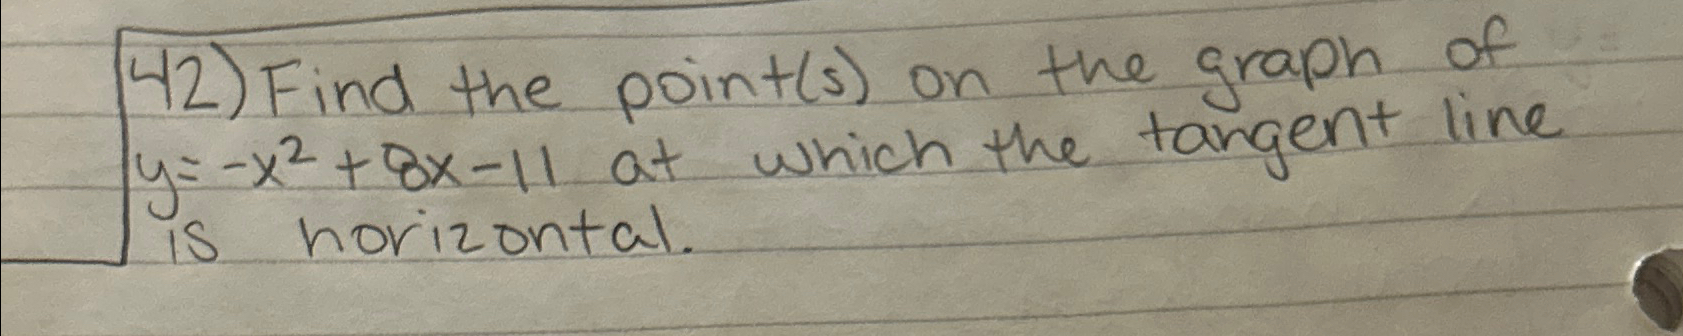 42) Find the point(s) on the graph of
y = -x² + 8x - 11 at which the tangent line
is horizontal.